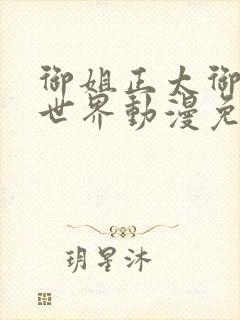 御姐正太御
世界動漫免
玥星沐